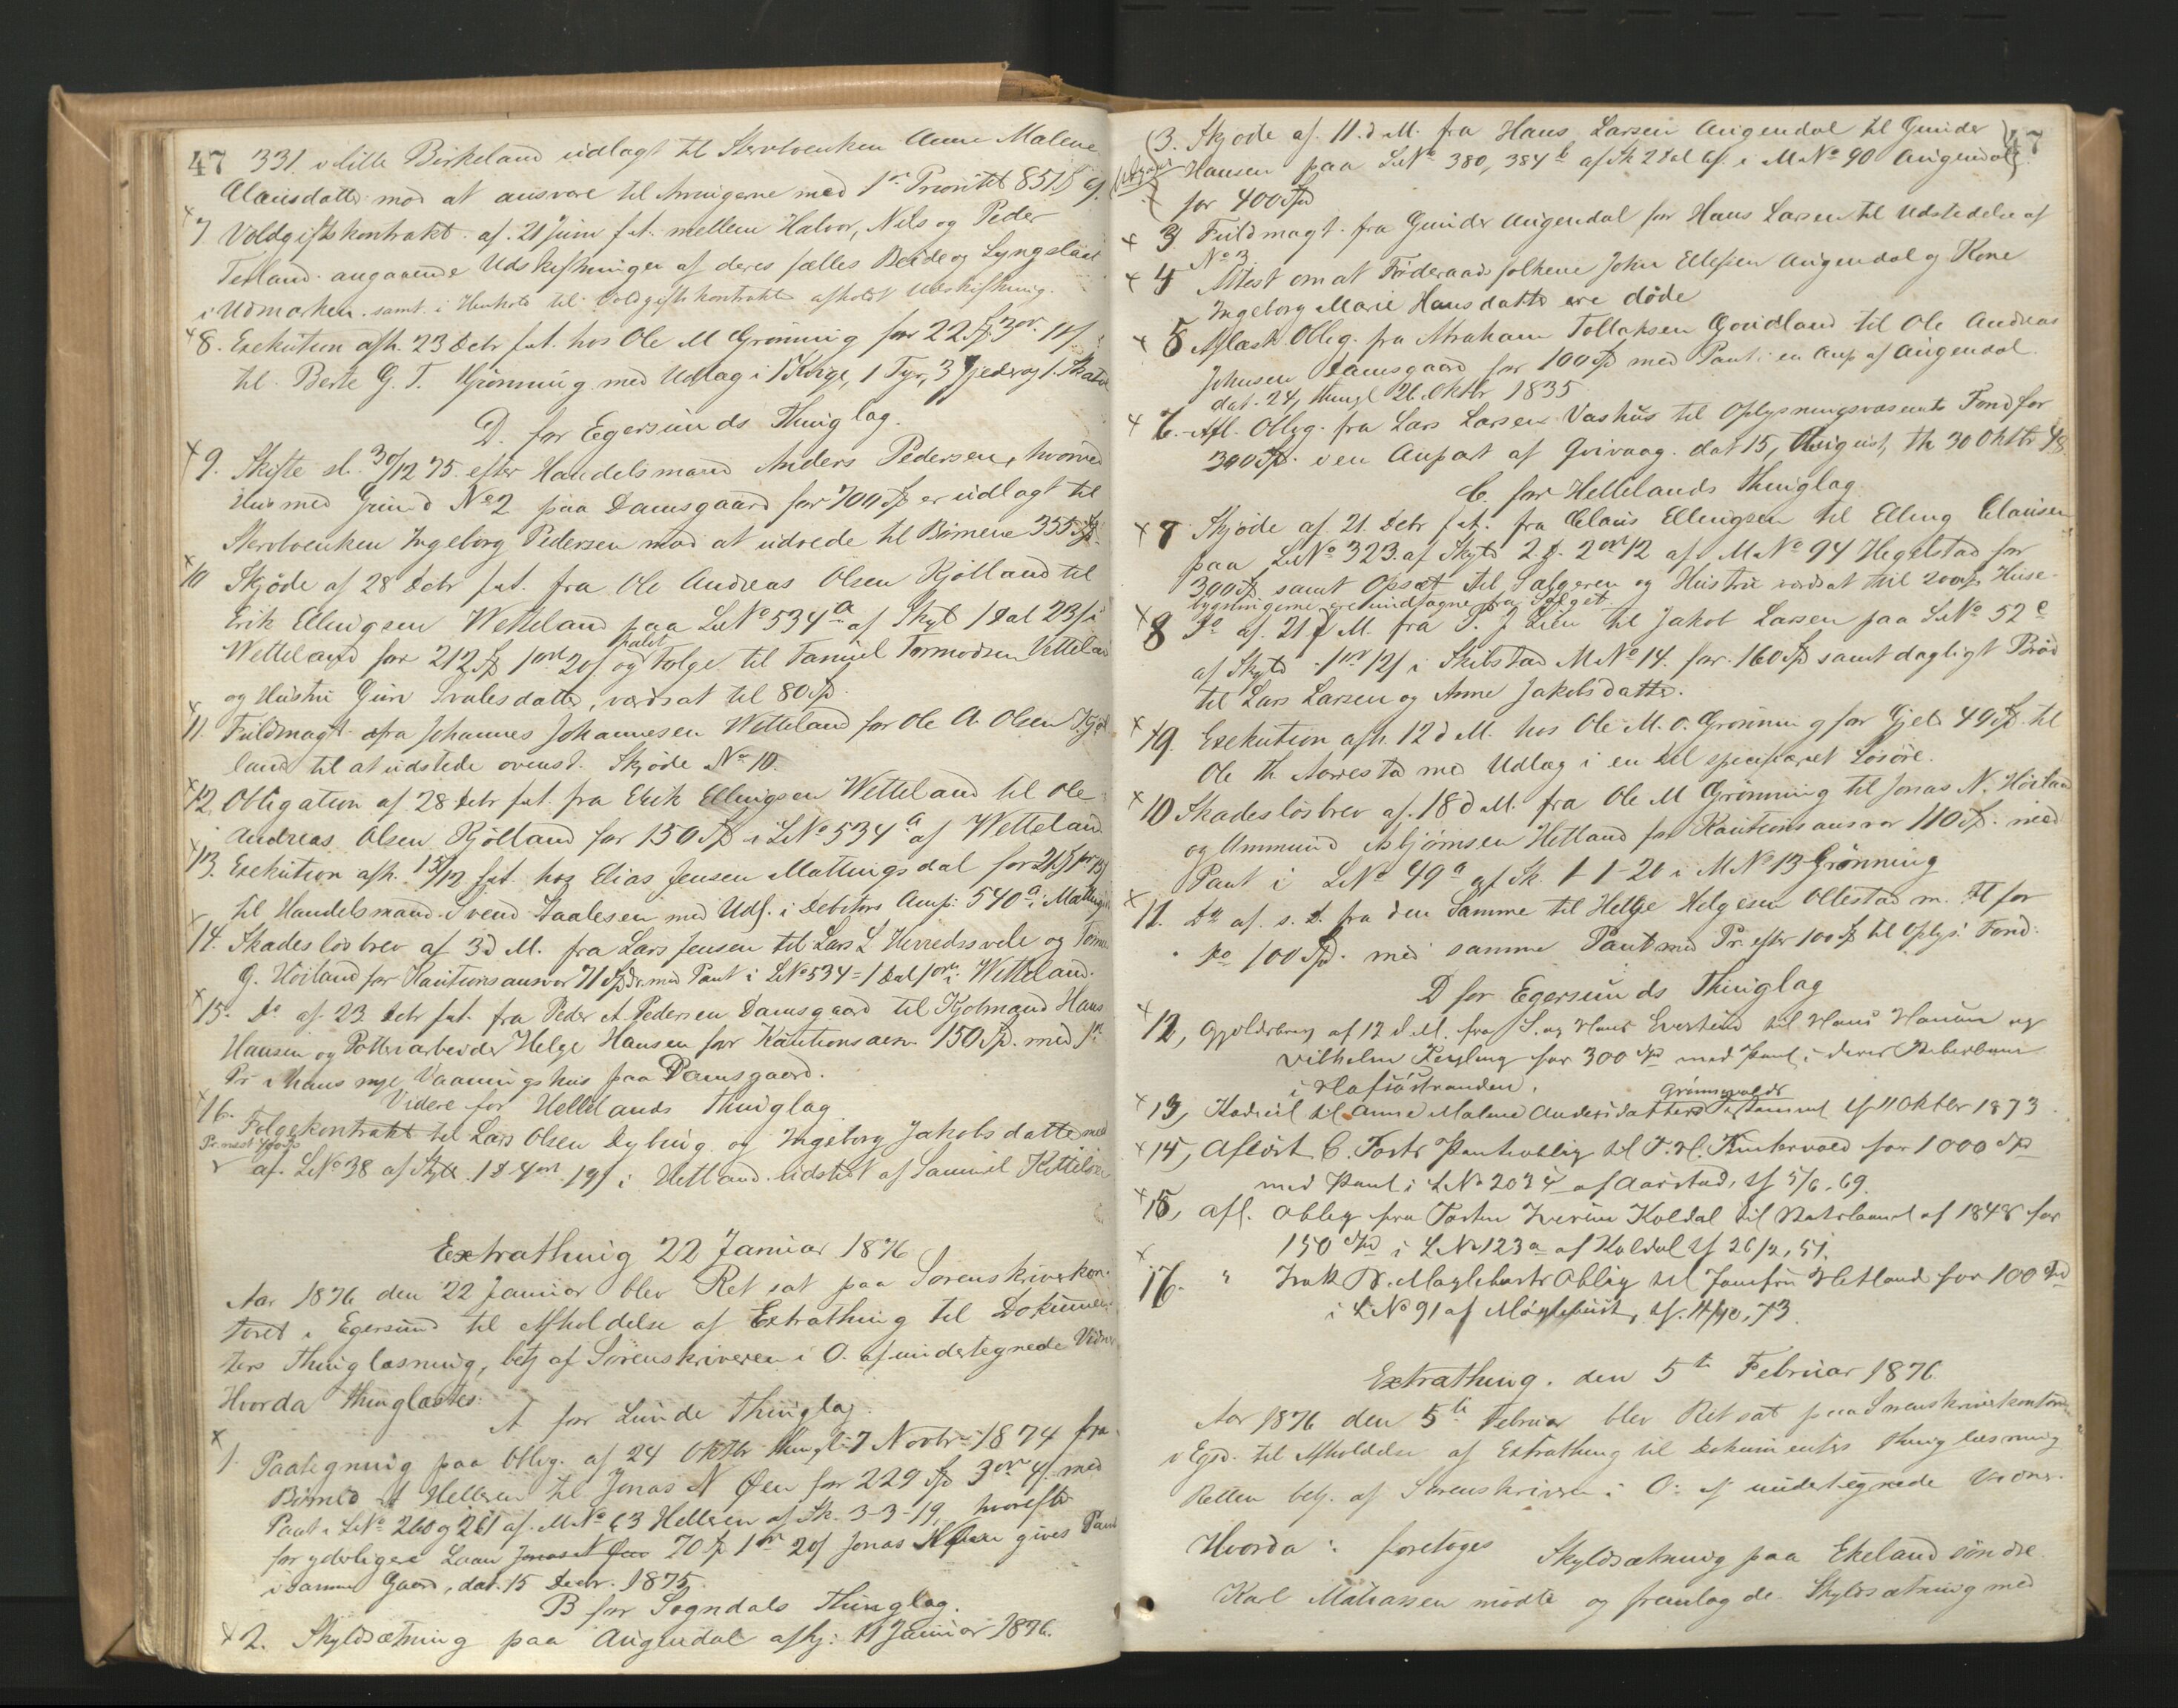 47 331 i Lille Birkeland udlagt til Stervboenken Anne Malene
Clausdatter mod at ansvare til Arvingerne med 1ste Prioritet 851 Sp
7 Voldgiftskontrakt af 21 Juni f.A. mellem Halvor, Nils og Peder
Terland angaaende Udskiftningen af deres fælles Beite og Lyngslaat
i Udmarken samt i Henhold til Voldgiftskontrakten afholdt Udskiftning.
8. Exekution afh. 23 Debr f.A. hos Ole M Grønning for 22 Sp 3 ort 11 s
til Berte G. T. Grønning med Udlæg i 1 Kvige, 1 Tyr, 3 Gjeder og 1
D. for Egersunds Thinglag.
9. Skifte sl. 30/12 75 efter Handelsmand Anders Pedersen, hvorved
Hus med Grund No 2 paa Damsgaard for 700 Sp er udlagt til
Stervboenken Ingeborg Pedersen mod at udrede til Børnene 355 Sp.
10 Skjøde af 28 Debr f.A. fra Ole Andreas Olsen Kjølland til
Erik Ellingsen Wetteland paa LNo 534 a af Skyld 1 Dal 23 s i
Wetteland for 212 Sp 1 ort 20 s og Folge til Tamuel Tormodsen Vetteland
og Hustru Guri Svalesdatter, værdsat til 80 Sp.
11. Fuldmagt fra Johannes Johannesen Wetteland for Ole A. Olsen Kjøl
land til at udstede ovenst. Skjøde No 10.
12. Obligation af 28 Debr f.A. fra Erik Ellingsen Wetteland til Ole
Andreas Olsen Kjølland for 150 Sp i LNo 534 a af Wetteland
13. Exekution afh. 15/12 f.A. hos Elias Jensen Mattingsdal for 21 Sp
til Handelsmand Svend Staalesen med Udl. i Debitors Anp. 540 a i Mattings
14. Skadesløsbrev af 3 d M. fra Lars Jensen til Lars L Herredssvele og
G. Høiland for Kautionsansvar 71 Spdr. med Pant i LNo 534 = 1 Dal 1 ort i Wetteland.
15. Do af 23 Debr f.A. fra Peder A Pedersen Damsgaard til Kjøbmand Hans
Hansen og Potteriarbeider Helge Hansen for Kautionsansv. 150 Sp. med 1ste
Pr. i hans nye Vaaningshus paa Damsgaard.
Videre for Hellelands Thinglag
16. Folgekontrakt til Lars Olsen Dybing og Ingeborg Jakobsdatter med
Pr. næst 400 Sp
af LNo 38 af Skyld 1 D 4 ort 19 s i Hetland udstedt af Samuel Kittilsen
Extrathing 22 Januar 1876
Aar 1876 den 22 Januar blev Ret sat paa Sorenskriverkon-
toret i Egersund til Afholdelse af Extrathing til Dokumen-
ters Thinglæsning, betj af Sorenskriveren i O. af undertegnede Vidner
Hvorda thinglæstes:
A for Lunde Thinglag.
1. Paategning paa Oblig. af 24 Oktbr thingl. 7 Novbr 1874 fra
Børneld Helleren til Jonas N Øen for 229 Sp 3 ort 4 s med
Pant i LNo 260 og 261 af MNo 63 Helleren af Sk. 3-3-19, hvorefter
for yderligere Laan Jonas N Øen 70 Sp 1 ort 20 s Jonas N Øen gives Pant
i samme Gaard, dat. 15 Decbr. 1875.
B for Sogndals Thinglag.
2. Skyldsætning paa Augendal afhj. 11 Januar 1876.
3. Skjøde af 11. d M. fra Hans Larsen Augendal til Gunder 47
Hansen paa LNo 380, 384 b af Sk 2 Dal 6 s i MNo 90 Augendal
for 400 Spd
3 Fuldmagt fra Gunder Augendal for Hans Larsen til Udstedelse af
No 3.
4 Attest om at Føderaadsfolkene John Ellefsen Augendal og Kone
Ingeborg Marie Hansdatter ere døde
5 Aflæst Oblig. fra Abraham Tollaksen Goudland til Ole Andreas
Johnsen Damsgaard for 100 Sp med Pant i en Anp af Augendal
dat. 24, thingl 26 Oktbr 1835
6. Afl. Oblig. fra Lars Larsen Vashus til Oplysningsvæsenets Fond for
300 Sp. i en Anpart af Qvivaag dat 15, August, th 30 Oktbr 48
C. for Hellelands Thinglag
7 Skjøde af 21. Debr f.A. fra Claus Ellingsen til Elling Clausen
paa LNo 323. af Skyld 2 D. 2 ort 12 af MNo 94 Hegelstad for
300 Sp samt Opsæt til Sælgeren og Hustru værdsat til 200 Sp. Huse-
bygningerne ere undtagne fra Salget
8 Do af 21 d M. fra P. J Lien til Jakob Larsen paa LNo 52 c
af Skyld 1 ort 12 s i Skibstad MNo 14. for 160 Sp samt dagligt Brød
til Lars Larsen og Anne Jakobsdatter.
9. Exekution afh. 12 d M. hos Ole M. O. Grønning for Gjeld 49 Sp. til
Ole Th Aarrestad med Udlæg i en Del specificeret Løsøre.
10 Skadesløsbrev af 18 d M. fra Ole M Grønning til Jonas N. Høiland
og Ammund Asbjørnsen Hetland for Kautionsansvar 110 Sp. med
Pant i LNo 49 a af Sk. 1-1-20 i MNo 13 Grønning
11. Do af s. D. fra den Samme til Helge Helgesen Ollestad m. Fl for
Do 100 Spd. med samme Pant med Pr. efter 100 Sp til Oplys. Fond.
D for Egersunds Thinglag
12, Gjældsbrev af 12 d M. fra S. og Hans Evertsen til Hans Hansen og
Vilhelm Feyling for 300 Spd med Pant i deres
i Hafsøstranden.
Grønnevolds
13, Kodicil til Anne Malene Andersdatters Testament tl 11 Oktbr 1873
14, Aflæst C. Fosts Pantoblig til P. H. for 1000 Spd
med Pant i LNo 203 af Aarstad, tl 5/6. 69.
15, Afl. Oblig fra Torsten Iversen Koldal til Statslaanet af 1848 for
150 Spd i LNo 123 a af Koldal tl 26/2. 51.
16. " B. Møglebusts Oblig til Jomfru Hetland for 100 Spd
i LNo 91 af Møglebust, tl. 4/10. 73.
Extrathing. den 5te Februar 1876.
Aar 1876 den 5te Februar blev Ret sat paa Sorenskriverkontoret
i Egsd. til Afholdelse af Extrathing til Dokumenters Thinglæsning
Retten betj. af Sorenskriveren i O. af undertegnede Vidner.
Hvorda: foretoges Skyldsætning paa Ekeland søndre.
Karl Mathiassen mødte og fremlagde Skyldsætning med